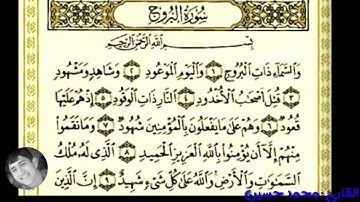 سُورَةُ البُرُوجِ
بِسْمِ اللَّهِ الرَّحْمَٰنِ الرَّحِيمِ
وَالسَّمَاءِ ذَاتِ الْبُرُوجِ ١ وَالْيَوْمِ الْمَوْعُودِ ٢ وَشَاهِدٍ وَمَشْهُودٍ
٣ قُتِلَ أَصْحَابُ الْأُخْدُودِ ٤ النَّارِ ذَاتِ الْوَقُودِ ٥ إِذْ هُمْ عَلَيْهَا
قُعُودٌ ٦ وَهُمْ عَلَىٰ مَا يَفْعَلُونَ بِالْمُؤْمِنِينَ شُهُودٌ ٧ وَمَا نَقَمُوا
مِنْهُمْ إِلَّا أَن يُؤْمِنُوا بِاللَّهِ الْعَزِيزِ الْحَمِيدِ ٨ الَّذِي لَهُ مُلْكُ
السَّمَاوَاتِ وَالْأَرْضِ وَاللَّهُ عَلَىٰ كُلِّ شَيْءٍ شَهِيدٌ ٩ إِنَّ الَّذِينَ
القارئ :محمد حسين